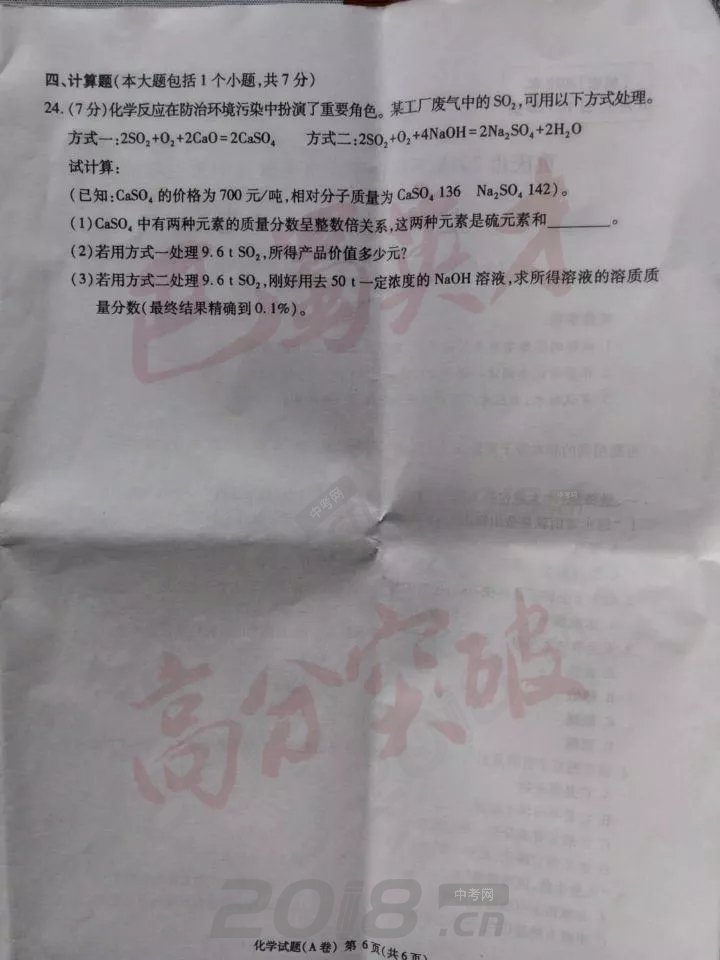 四、计算题(本大题包括1个小题,共7分)
24.(7分)化学反应在防治环境污染中扮演了重要角色。某工厂废气中的SO₂,可用以下方式处理。
方式一:2SO₂+O₂+2CaO=2CaSO₄ 方式二:2SO₂+O₂+4NaOH=2Na₂SO₄+2H₂O
试计算:
(已知:CaSO₄的价格为700元/吨,相对分子质量为CaSO₄ 136 Na₂SO₄ 142)。
(1)CaSO₄中有两种元素的质量分数呈整数倍关系,这两种元素是硫元素和________。
(2)若用方式一处理9.6 t SO₂,所得产品价值多少元?
(3)若用方式二处理9.6 t SO₂,刚好用去50 t一定浓度的NaOH溶液,求所得溶液的溶质质
量分数(最终结果精确到0.1%)。
中考网
中考网
高分突破
中考网
2018.cn
化学试题(A卷) 第6页(共6页)